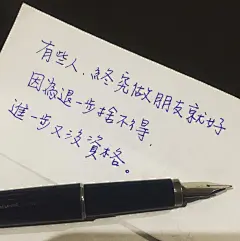 有些人、終究做朋友就好
因為退一步捨不得，
進一步又沒資格。